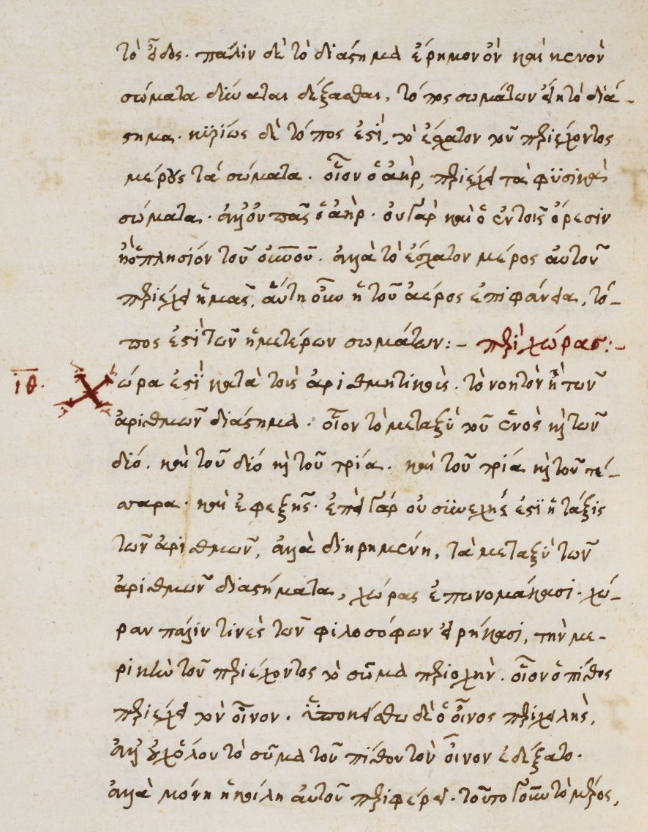 τὸ εἶδος· πάλιν δὲ τὸ διάστημα ἐρημον ὂν καὶ κενὸν
σώματα δύναται δέξασθαι, τόπος σωμάτων εἴη τὸ διά-
στημα· κυρίως δὲ τόπος ἐστὶ, τὸ ἔσχατον τοῦ περιέχοντος
μέρους τὰ σώματα· οἷον ὁ ἀὴρ, περιέχει τὰ φυσικὰ
σώματα· ἀλλ' οὐ πᾶς ὁ ἀὴρ· οὐ γὰρ καὶ ὁ ἐν τοῖς ὄρεσιν
ἢ ὁ πλησίον τοῦ· ἀλλὰ τὸ ἔσχατον μέρος αὐτοῦ
περιέχει ἡμᾶς, αὕτη οὖν ἡ τοῦ ἀέρος ἐπιφάνεια, τό-
πος ἐστὶ τῶν ἡμετέρων σωμάτων:- περὶ χώρας:-
ιθ. Χώρα ἐστὶ κατὰ τοὺς ἀριθμητικοὺς· τὸ νοητὸν ἢ τῶν
ἀριθμῶν διάστημα· οἷον τὸ μεταξὺ τοῦ ἑνὸς καὶ τῶν
δύο· καὶ τοῦ δύο καὶ τοῦ τρία· καὶ τοῦ τρία καὶ τοῦ τέσ-
σαρα· καὶ ἐφεξῆς· ἐπεὶ γὰρ οὐ συνεχής ἐστὶ ἡ τάξις
τῶν ἀριθμῶν, ἀλλὰ διηρημένη, τὰ μεταξὺ τῶν
ἀριθμῶν διαστήματα, χώρας ἐπωνομάκασι· χώ-
ραν πάλιν τινὲς τῶν φιλοσόφων εἰρήκασι, τὴν με-
ρικὴν τοῦ περιέχοντος τὸ σῶμα περιοχὴν· οἷον ὁ πίθος
περιέχει τὸν οἶνον· ὑποκείσθω δὲ ὁ οἶνος περιχεθῆς,
ἀλλ' οὐχ ὅλον τὸ σῶμα τοῦ πίθου τὸν οἶνον ἐδέξατο·
ἀλλὰ μόνη ἡ κοίλη αὐτοῦ περιφέρεια· τοῦτο γοῦν τὸ μέρος,